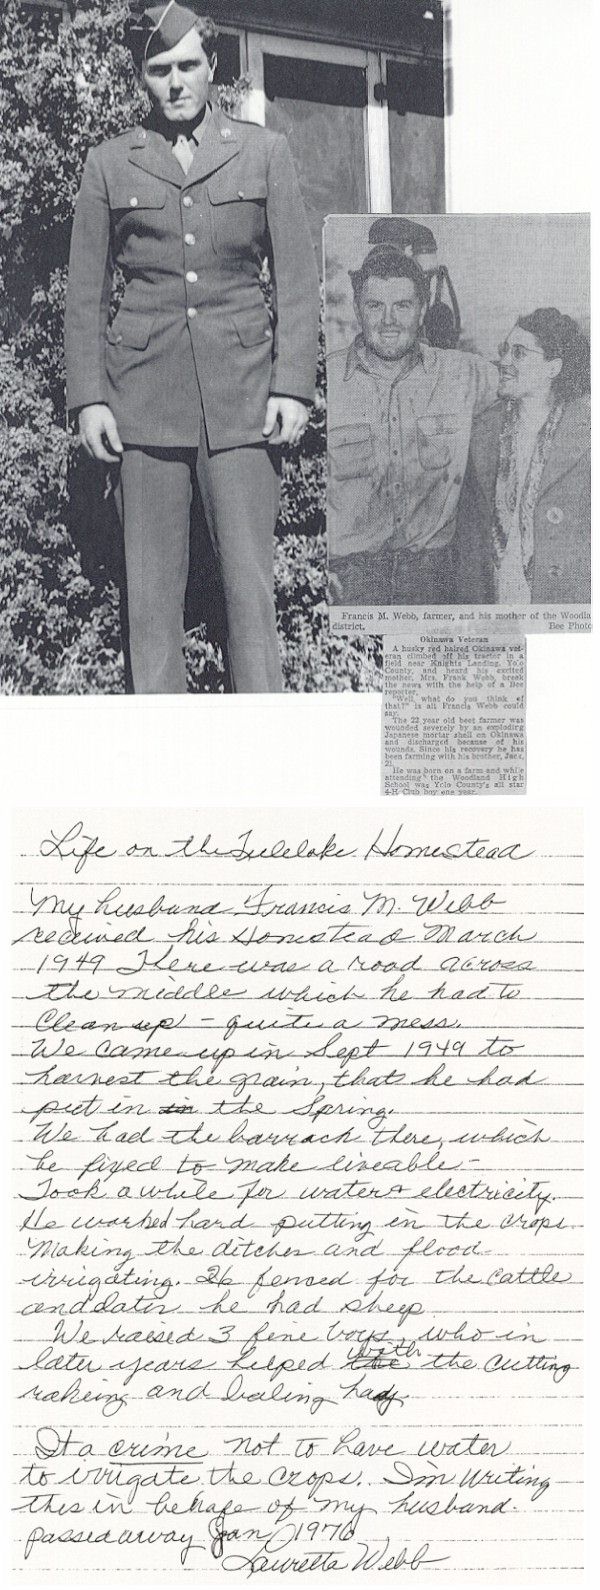 Francis M. Webb, farmer, and his mother of the Woodla
district. Bee Photo
Okinawa Veteran
A husky red haired Okinawa vet-
eran climbed off his tractor in a
field near Knights Landing, Yolo
County, and heard his excited
mother, Mrs. Frank Webb, break
the news with the help of a Bee
reporter.
"Well, what do you think of
that?" is all Francis Webb could
say.
The 22 year old beet farmer was
wounded severely by an exploding
Japanese mortar shell on Okinawa
and discharged because of his
wounds. Since his recovery he has
been farming with his brother, Jack,
21.
He was born on a farm and while
attending the Woodland High
School was Yolo County's all star
4-H Club boy one year.
Life on the Tulelake Homestead
My husband Francis M. Webb
received his Homestead March
1949 There was a road across
the middle which he had to
Clean up - quite a mess.
We came up in Sept 1949 to
harvest the grain, that he had
put in in the Spring.
We had the barrack there, which
he fixed to make liveable -
Took a while for water & electricity.
He worked hard putting in the crops
Making the ditches and flood
irrigating. He fenced for the cattle
and later he had sheep
We raised 3 fine boys, who in
later years helped the with the cutting
rakeing and baling hay.
It a crime not to have water
to irrigate the crops. I'm writing
this in behafe of my husband
passed away Jan 1976
Lauretta Webb